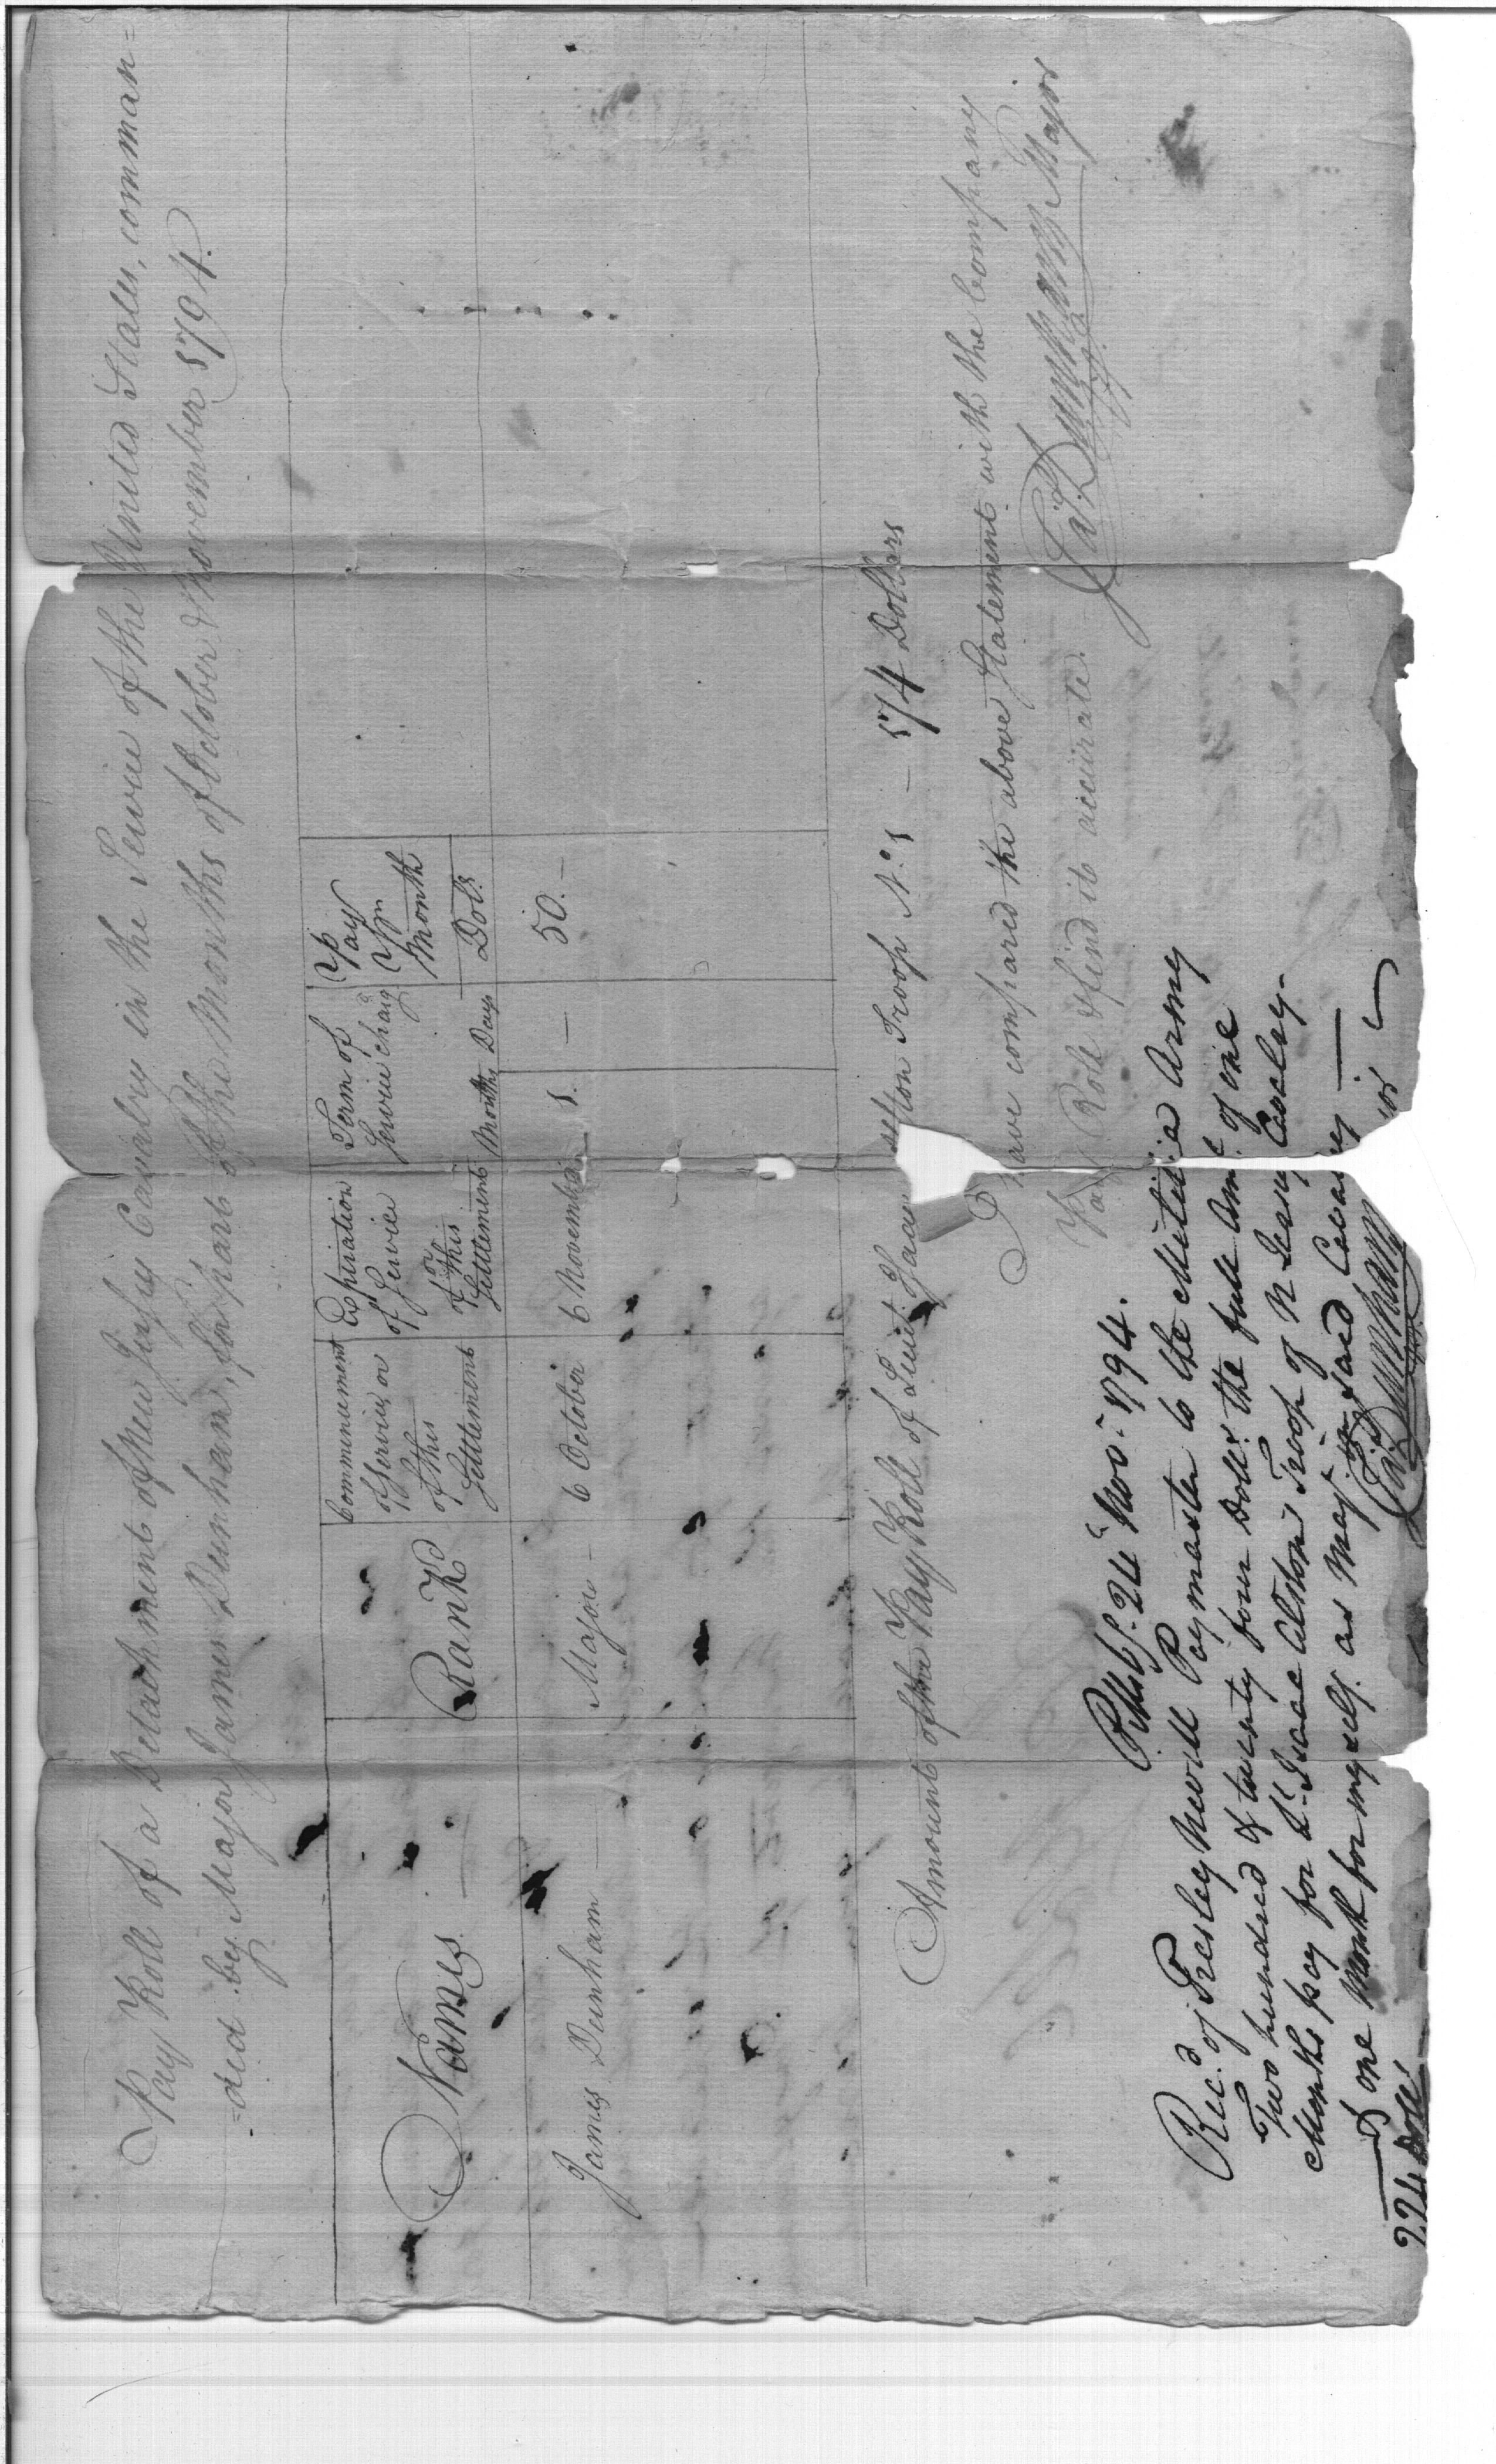 Pay Roll of a Detachment of New Jersey Cavalry in the Service of the United States, comman=
=ded by Major James Dunham, for part of the Months of October & November 1794.
Names
Rank
Commencement of Service or of this Settlement
Expiration of Service or of this Settlement
Term of Service charg.d
Months Days
Pay pr. Month
Dolls
James Dunham — Major — 6 October 6 November 1. — 50. —
Amount of the Pay Roll of Lieut. Isaac Troop No. 1 — 174 Dollars
I have compared the above Statement with the Company
Pay Roll & find it accurate.
Jas. Dunham Major
Pittsbg. 24 Nov. 1794.
Recd. of Presley Nevill Paymaster to the Militia Army
Two hundred & twenty four Dolls. the full Amt. of one
Months pay for Lt. Isaac Troop of N Jersey Cavalry-
& one Month for myself as Major in said Cavalry —
224 Dolls.
Jas. Dunham